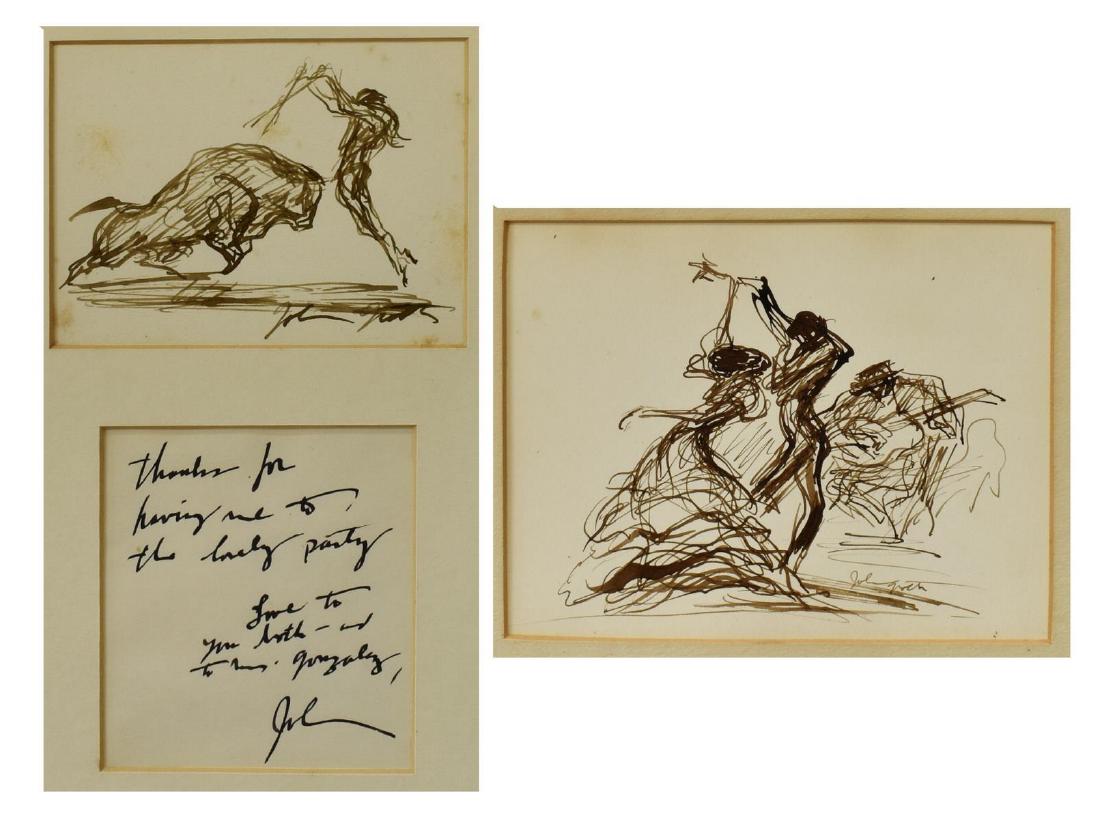 John Groth
thanks for
having me to
the lovely party
Love to
you both - and
to mrs. gonzalez,
John
John Groth